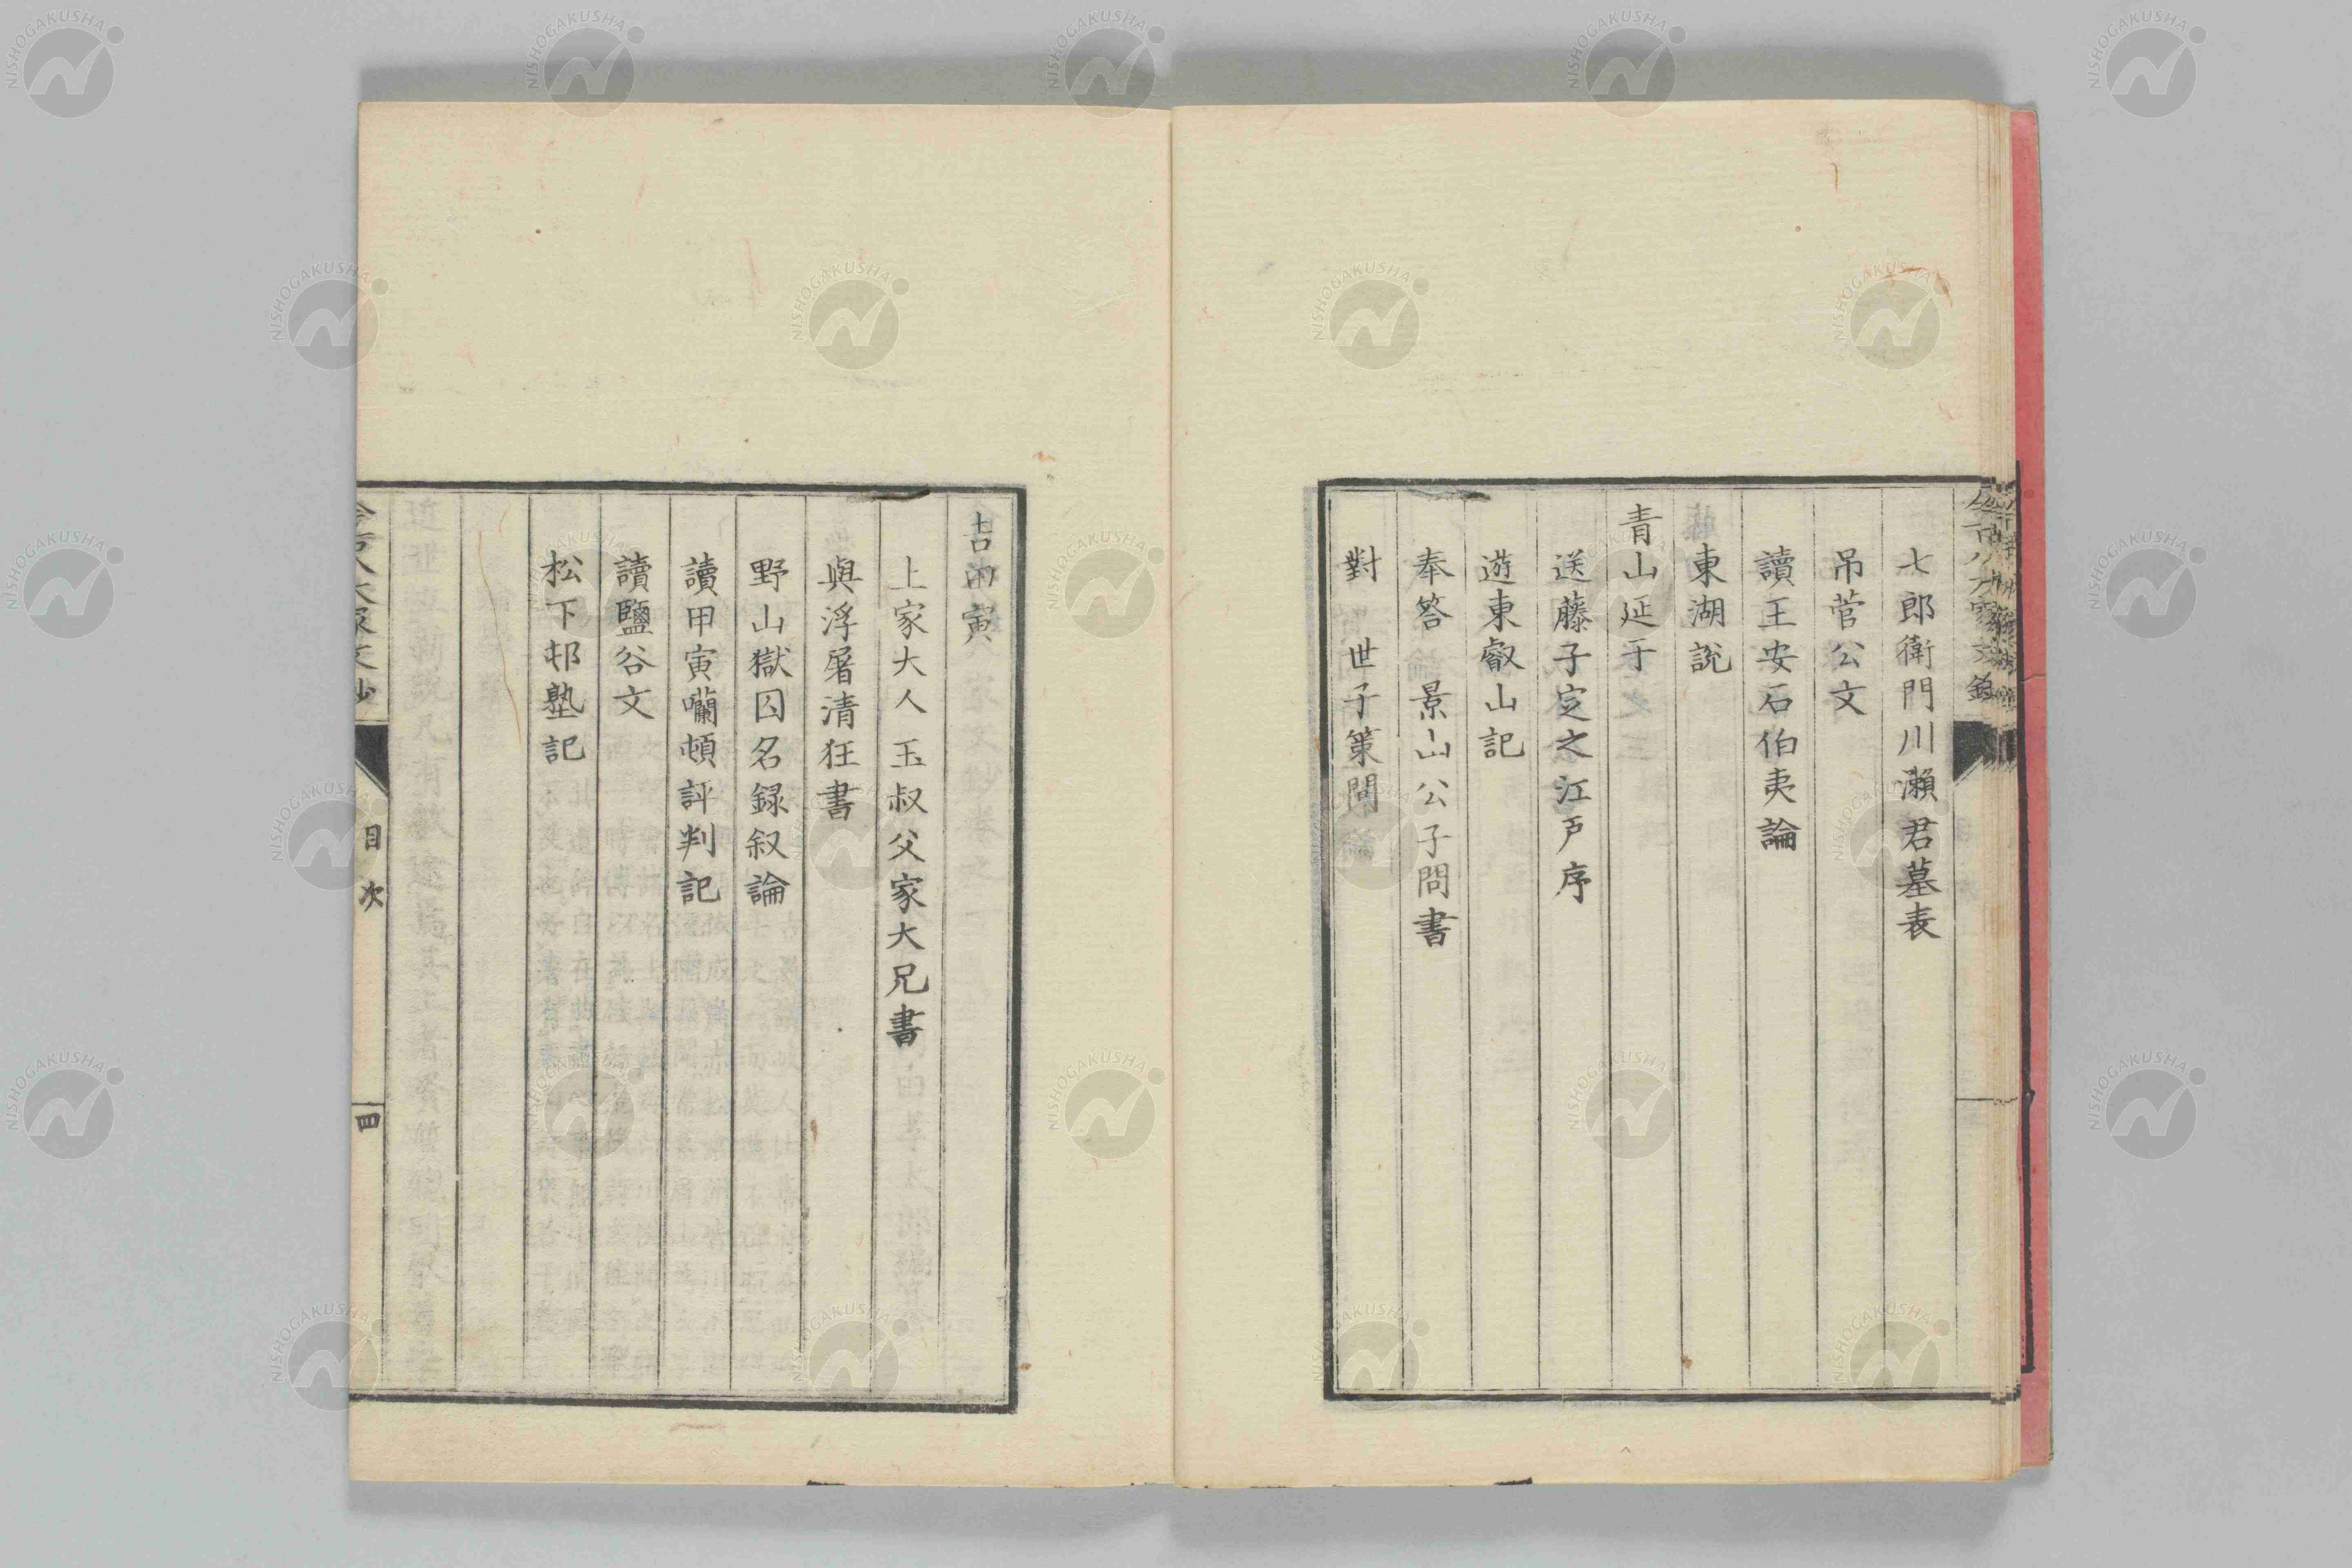 七郎衛門川瀬君墓表
吊菅公文
讀王安石伯夷論
東湖説
青山延于
送藤子定之江戸序
遊東叡山記
奉答 景山公子問書
對 世子策問
吉田寅
上家大人玉叔父家大兄書
與浮屠清狂書
野山獄囚名録叙論
讀甲寅㘓頓評判記
讀鹽谷文
松下邨塾記
目次
四
NISHOGAKUSHA